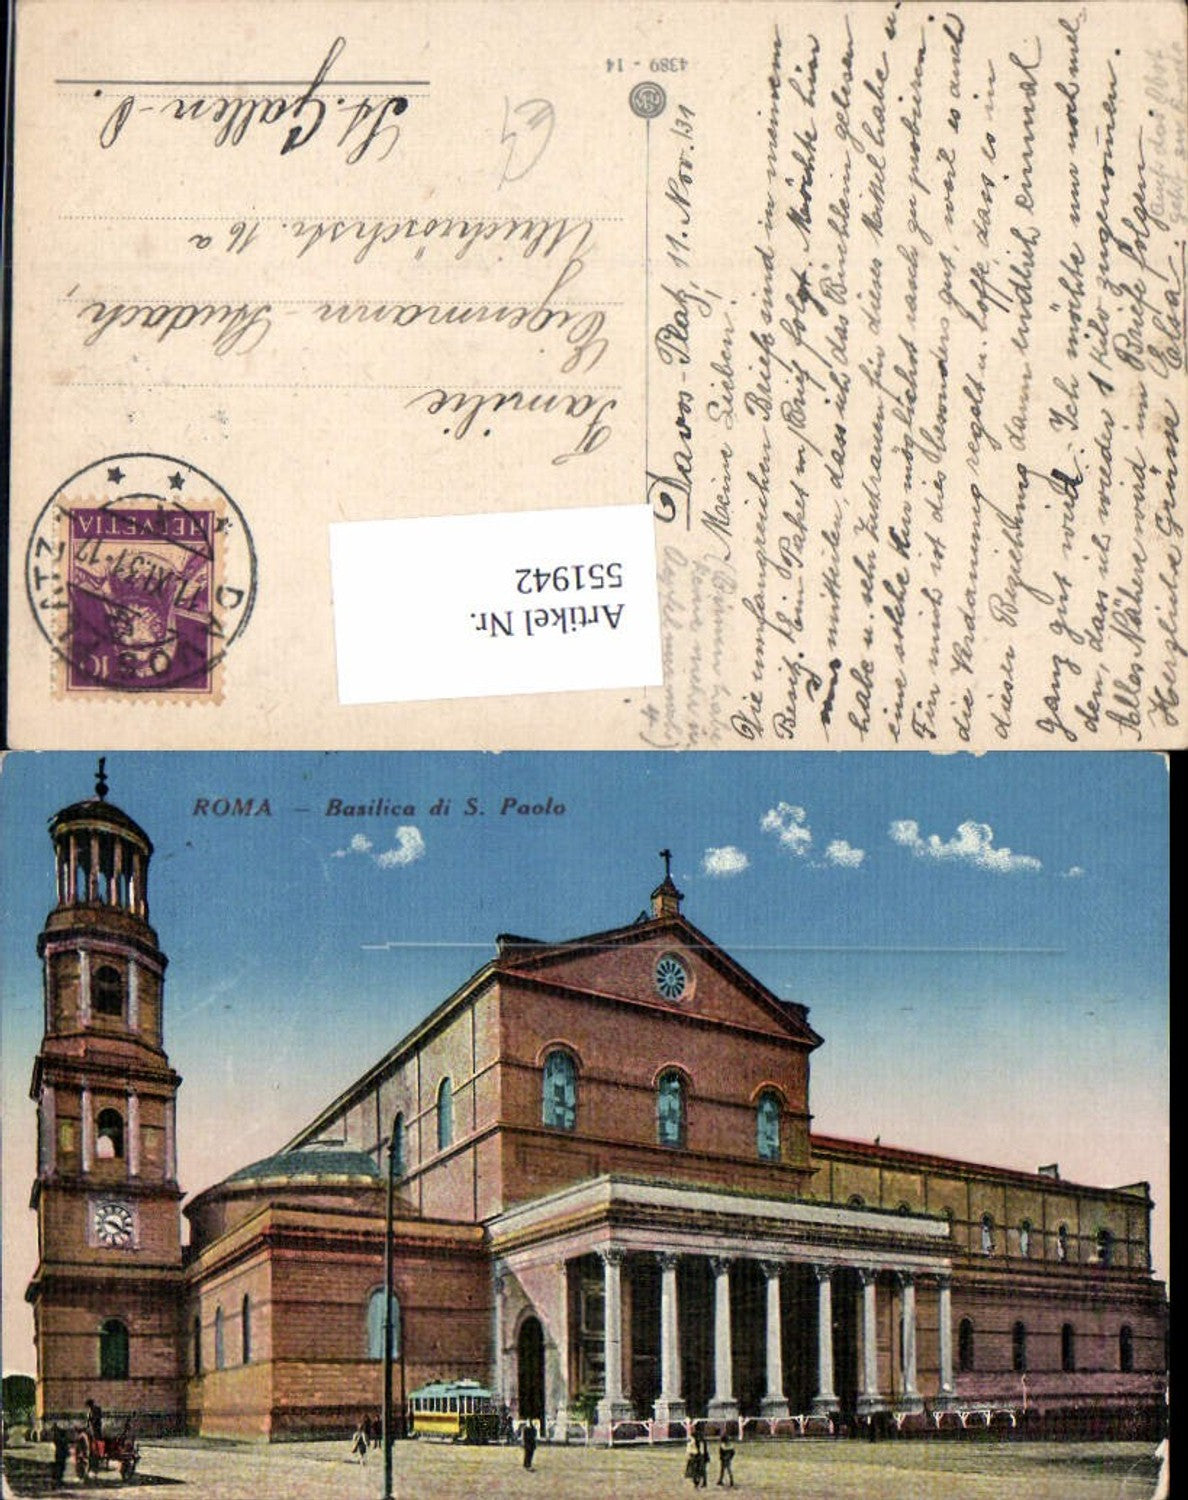 Familie
Eigenmann-Studach,
Ulrichröschstr. 16a
St. Gallen-O.
4389 - 14
HELVETIA
10
DAVOS PLATZ 1
11.XI.31-17
Artikel Nr.
551942
Davos-Platz, 11. Nov. 131
Meine Lieben!
Die umfangreichen Briefe sind in meinem
Besitz. Ein Paket m/Brief folgt. Möchte hier
nur mitteilen, dass ich das Büchlein gelesen
habe u. sehr Zutrauen für dieses Mittel habe u.
eine solche Kur möglichst rasch zu probieren.
Für mich ist dies besonders gut, weil es auch
die Verdauung regelt u. hoffe, dass es in
dieser Beziehung dann endlich einmal
ganz gut wird. Ich möchte nur noch mel-
den, dass ich wieder 1 Kilo zugenommen.
Alles Nähere wird im Briefe folgen
Herzliche Grüsse Elsa.
ROMA — Basilica di S. Paolo